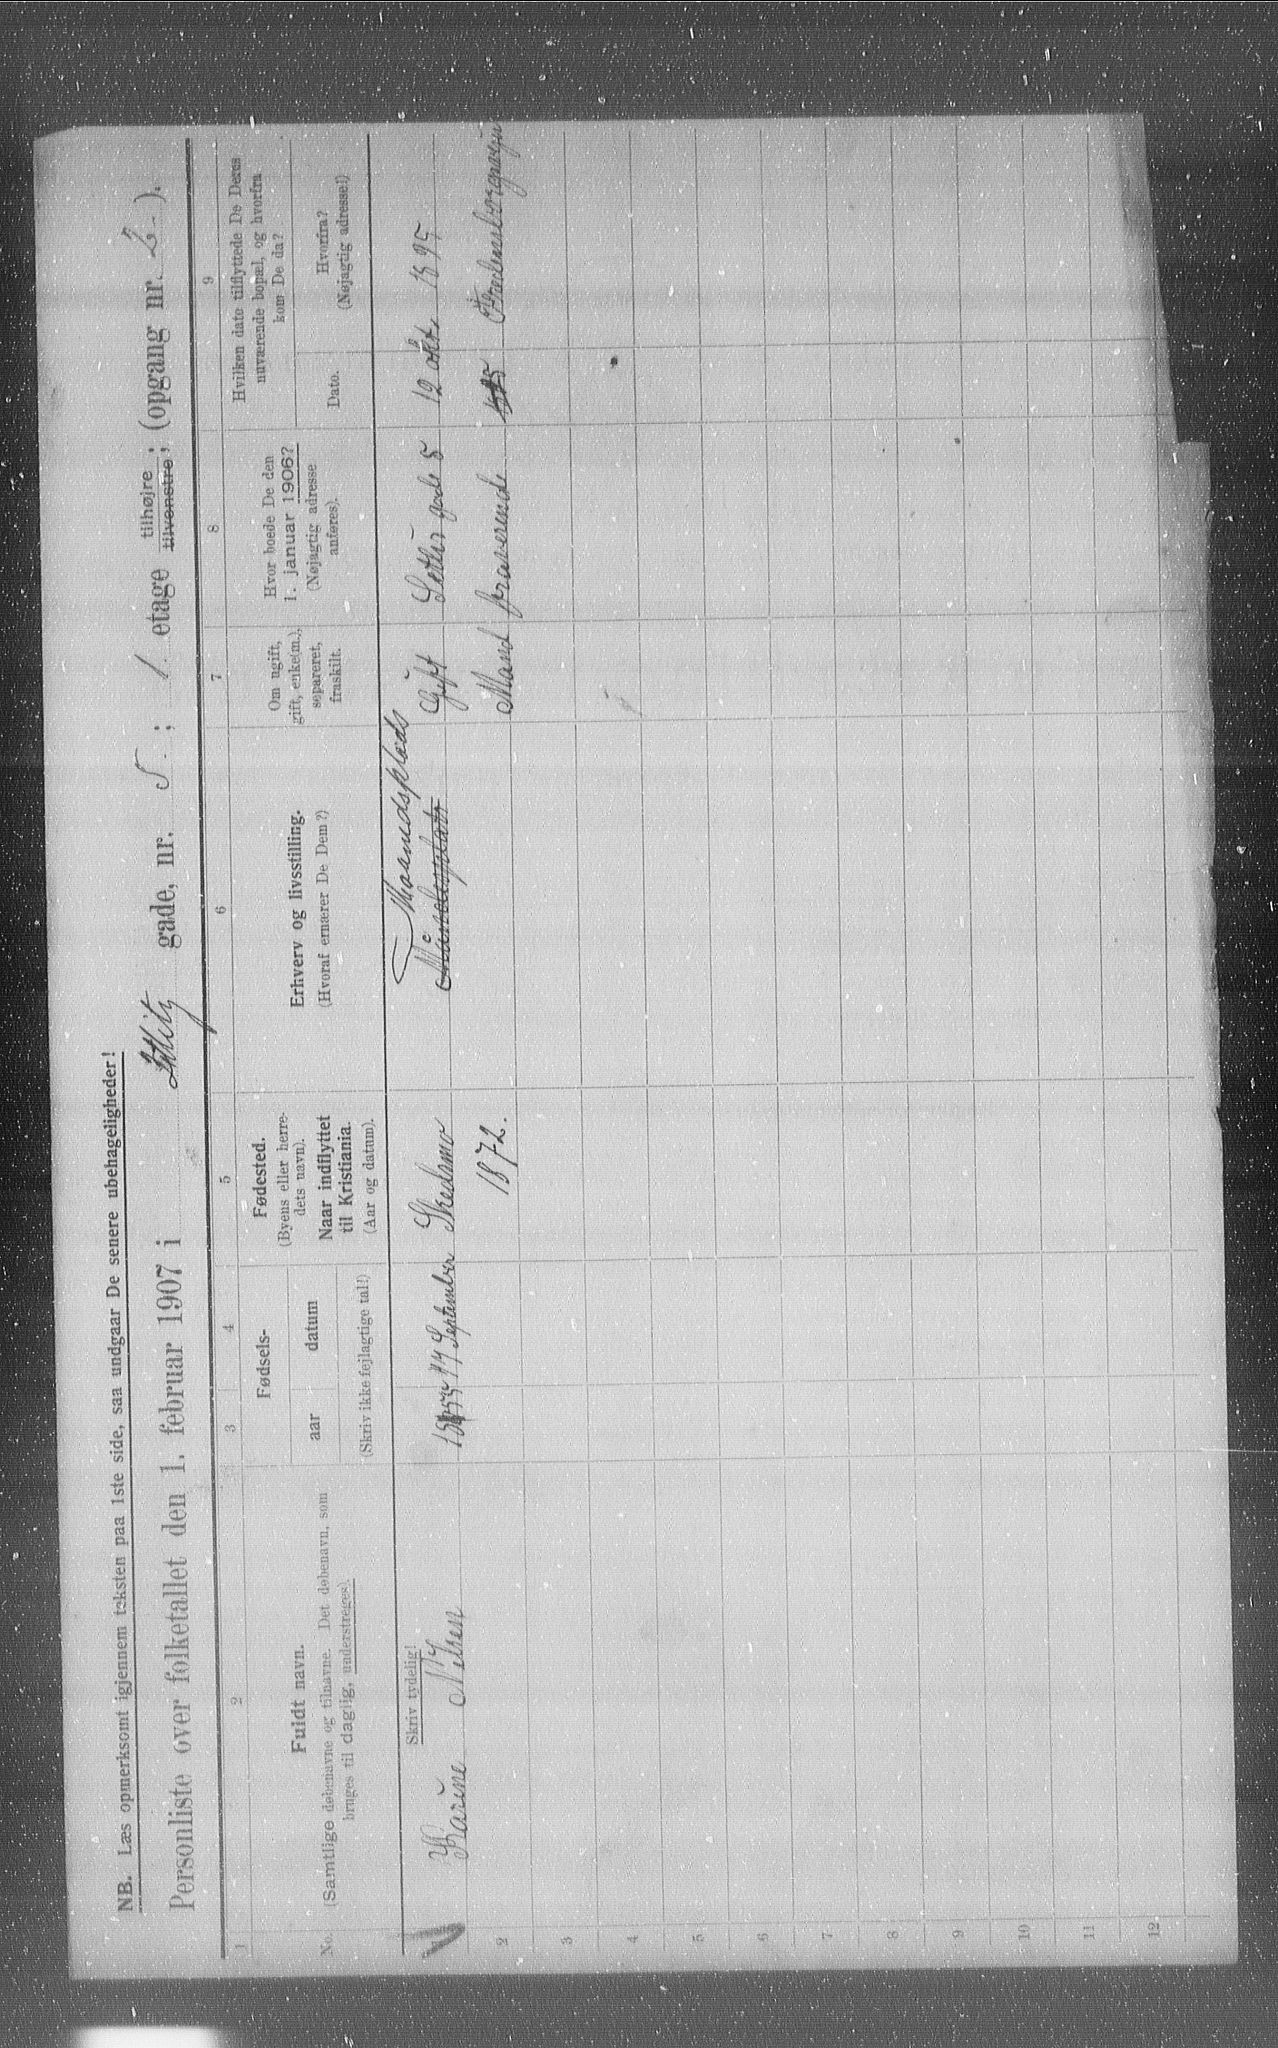 NB. Læs opmerksomt igjennem teksten paa 1ste side, saa undgaar De senere ubehageligheder!
Personliste over folketallet den 1. februar 1907 i gade, nr. 5. ; 1. etage tilhøjre ; tilvenstre ; (opgang nr. 2 ).
1 2 3 4 5 6 7 8 9
No.
Fuldt navn.
(Samtlige døbenavne og tilnavne. Det døbenavn, som
bruges til daglig, understreges).
Fødsels-
aar
datum
(Skriv ikke fejlagtige tal!)
Fødested.
(Byens eller herre-
dets navn).
Naar indflyttet
til Kristiania.
(Aar og datum).
Erhverv og livsstilling.
(Hvoraf ernærer De Dem?)
Om ugift,
gift, enke(m.),
separeret,
fraskilt.
Hvor boede De den
1. januar 1906?
(Nøjagtig adresse
anføres).
Hvilken dato tilflyttede De Deres
nuværende bopæl, og hvorfra
kom De da?
Dato.
Hvorfra?
(Nøjagtig adresse!)
Skriv tydelig!
Maanedsplads
Karine Nilsen 14 September Skedsmo Gift gade 5 12 okt. 1895
2 1872. Mand fraverende
3
4
5
6
7
8
9
10
11
12